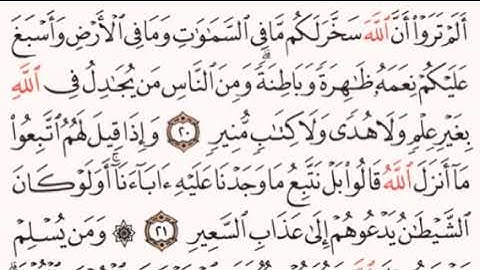 أَلَمْ تَرَوْا۟ أَنَّ ٱللَّهَ سَخَّرَ لَكُم مَّا فِى ٱلسَّمَٰوَٰتِ وَمَا فِى ٱلْأَرْضِ وَأَسْبَغَ
عَلَيْكُمْ نِعَمَهُۥ ظَٰهِرَةً وَبَاطِنَةً ۗ وَمِنَ ٱلنَّاسِ مَن يُجَٰدِلُ فِى ٱللَّهِ
بِغَيْرِ عِلْمٍ وَلَا هُدًى وَلَا كِتَٰبٍ مُّنِيرٍ ٢٠ وَإِذَا قِيلَ لَهُمُ ٱتَّبِعُوا۟
مَآ أَنزَلَ ٱللَّهُ قَالُوا۟ بَلْ نَتَّبِعُ مَا وَجَدْنَا عَلَيْهِ ءَابَآءَنَآ ۚ أَوَلَوْ كَانَ
ٱلشَّيْطَٰنُ يَدْعُوهُمْ إِلَىٰ عَذَابِ ٱلسَّعِيرِ ٢١ ۞ وَمَن يُسْلِمْ